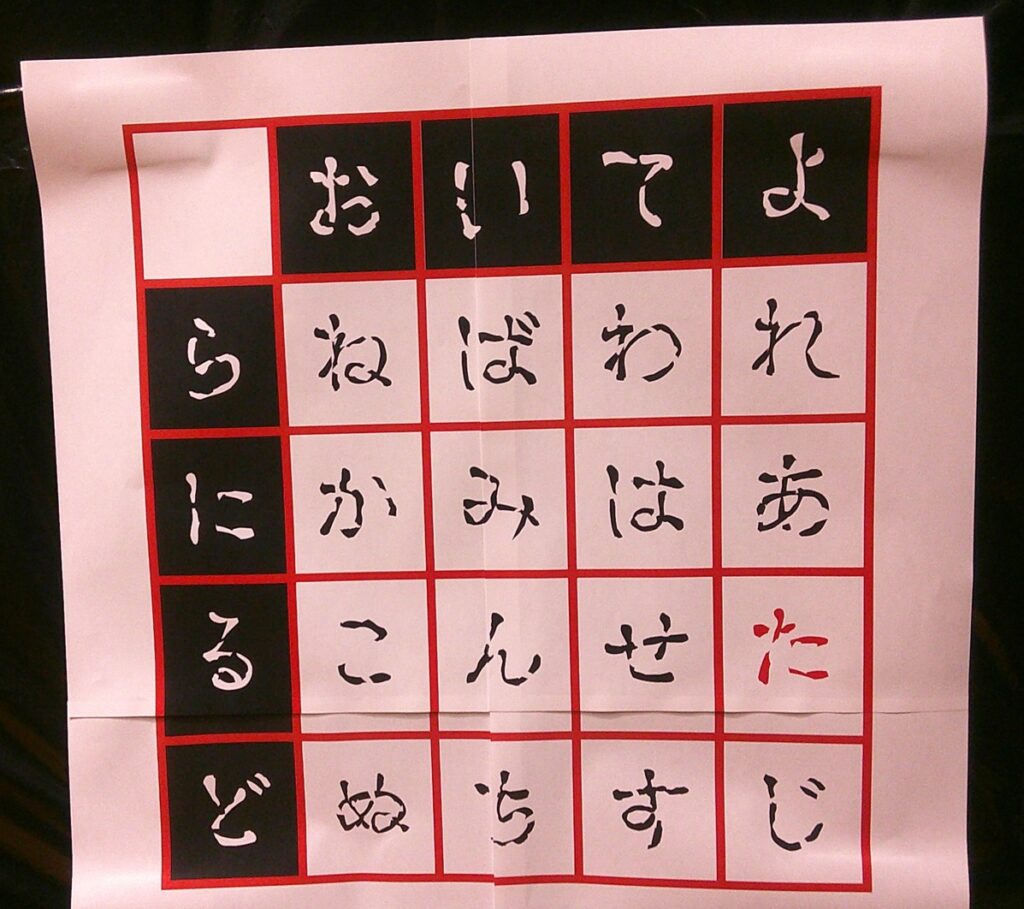 おいてよ
らねばわれ
にかみはあ
るこんせた
どぬちすじ